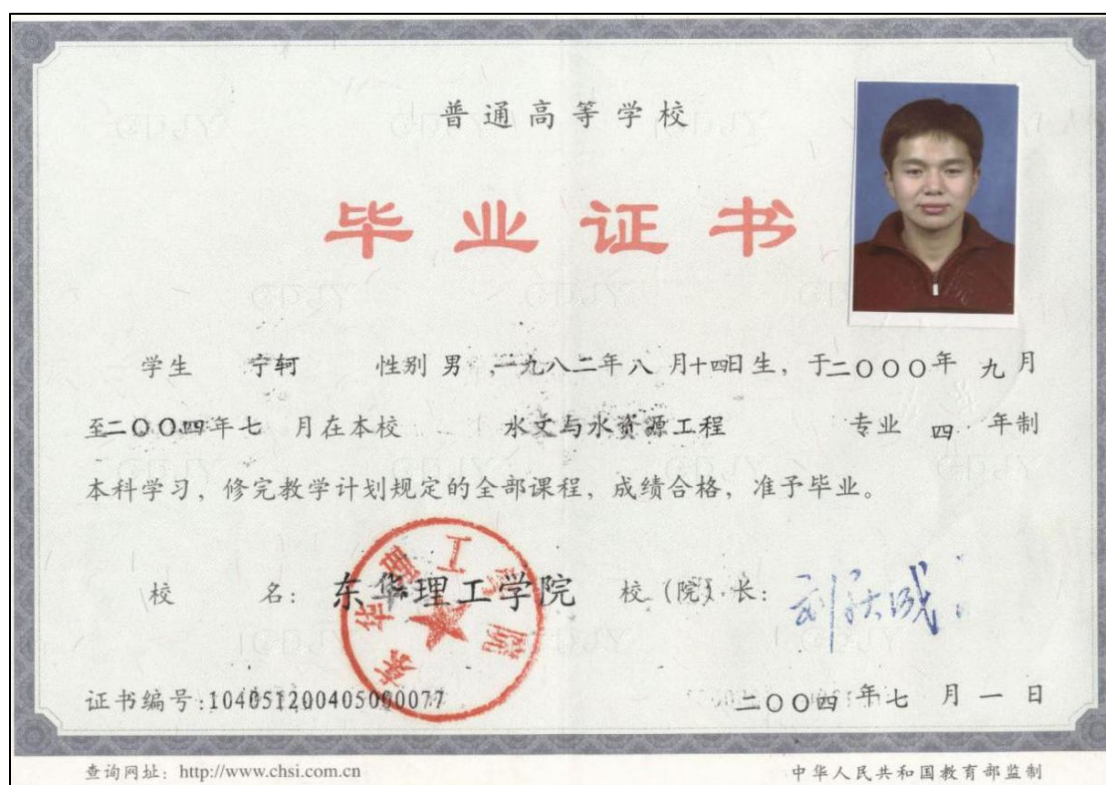 普通高等学校
毕业证书
学生 宁轲 性别 男 ,一九八二年八 月十四日生，于二〇〇〇年 九 月
至二〇〇四年七 月在本校 水文与水资源工程 专业 四 年制
本科学习，修完教学计划规定的全部课程，成绩合格，准予毕业。
校 名：东华理工学院 校（院）长：
东华理工学院
证书编号:104051200405000077 二〇〇四 年七 月 一 日
查询网址：http://www.chsi.com.cn 中华人民共和国教育部监制